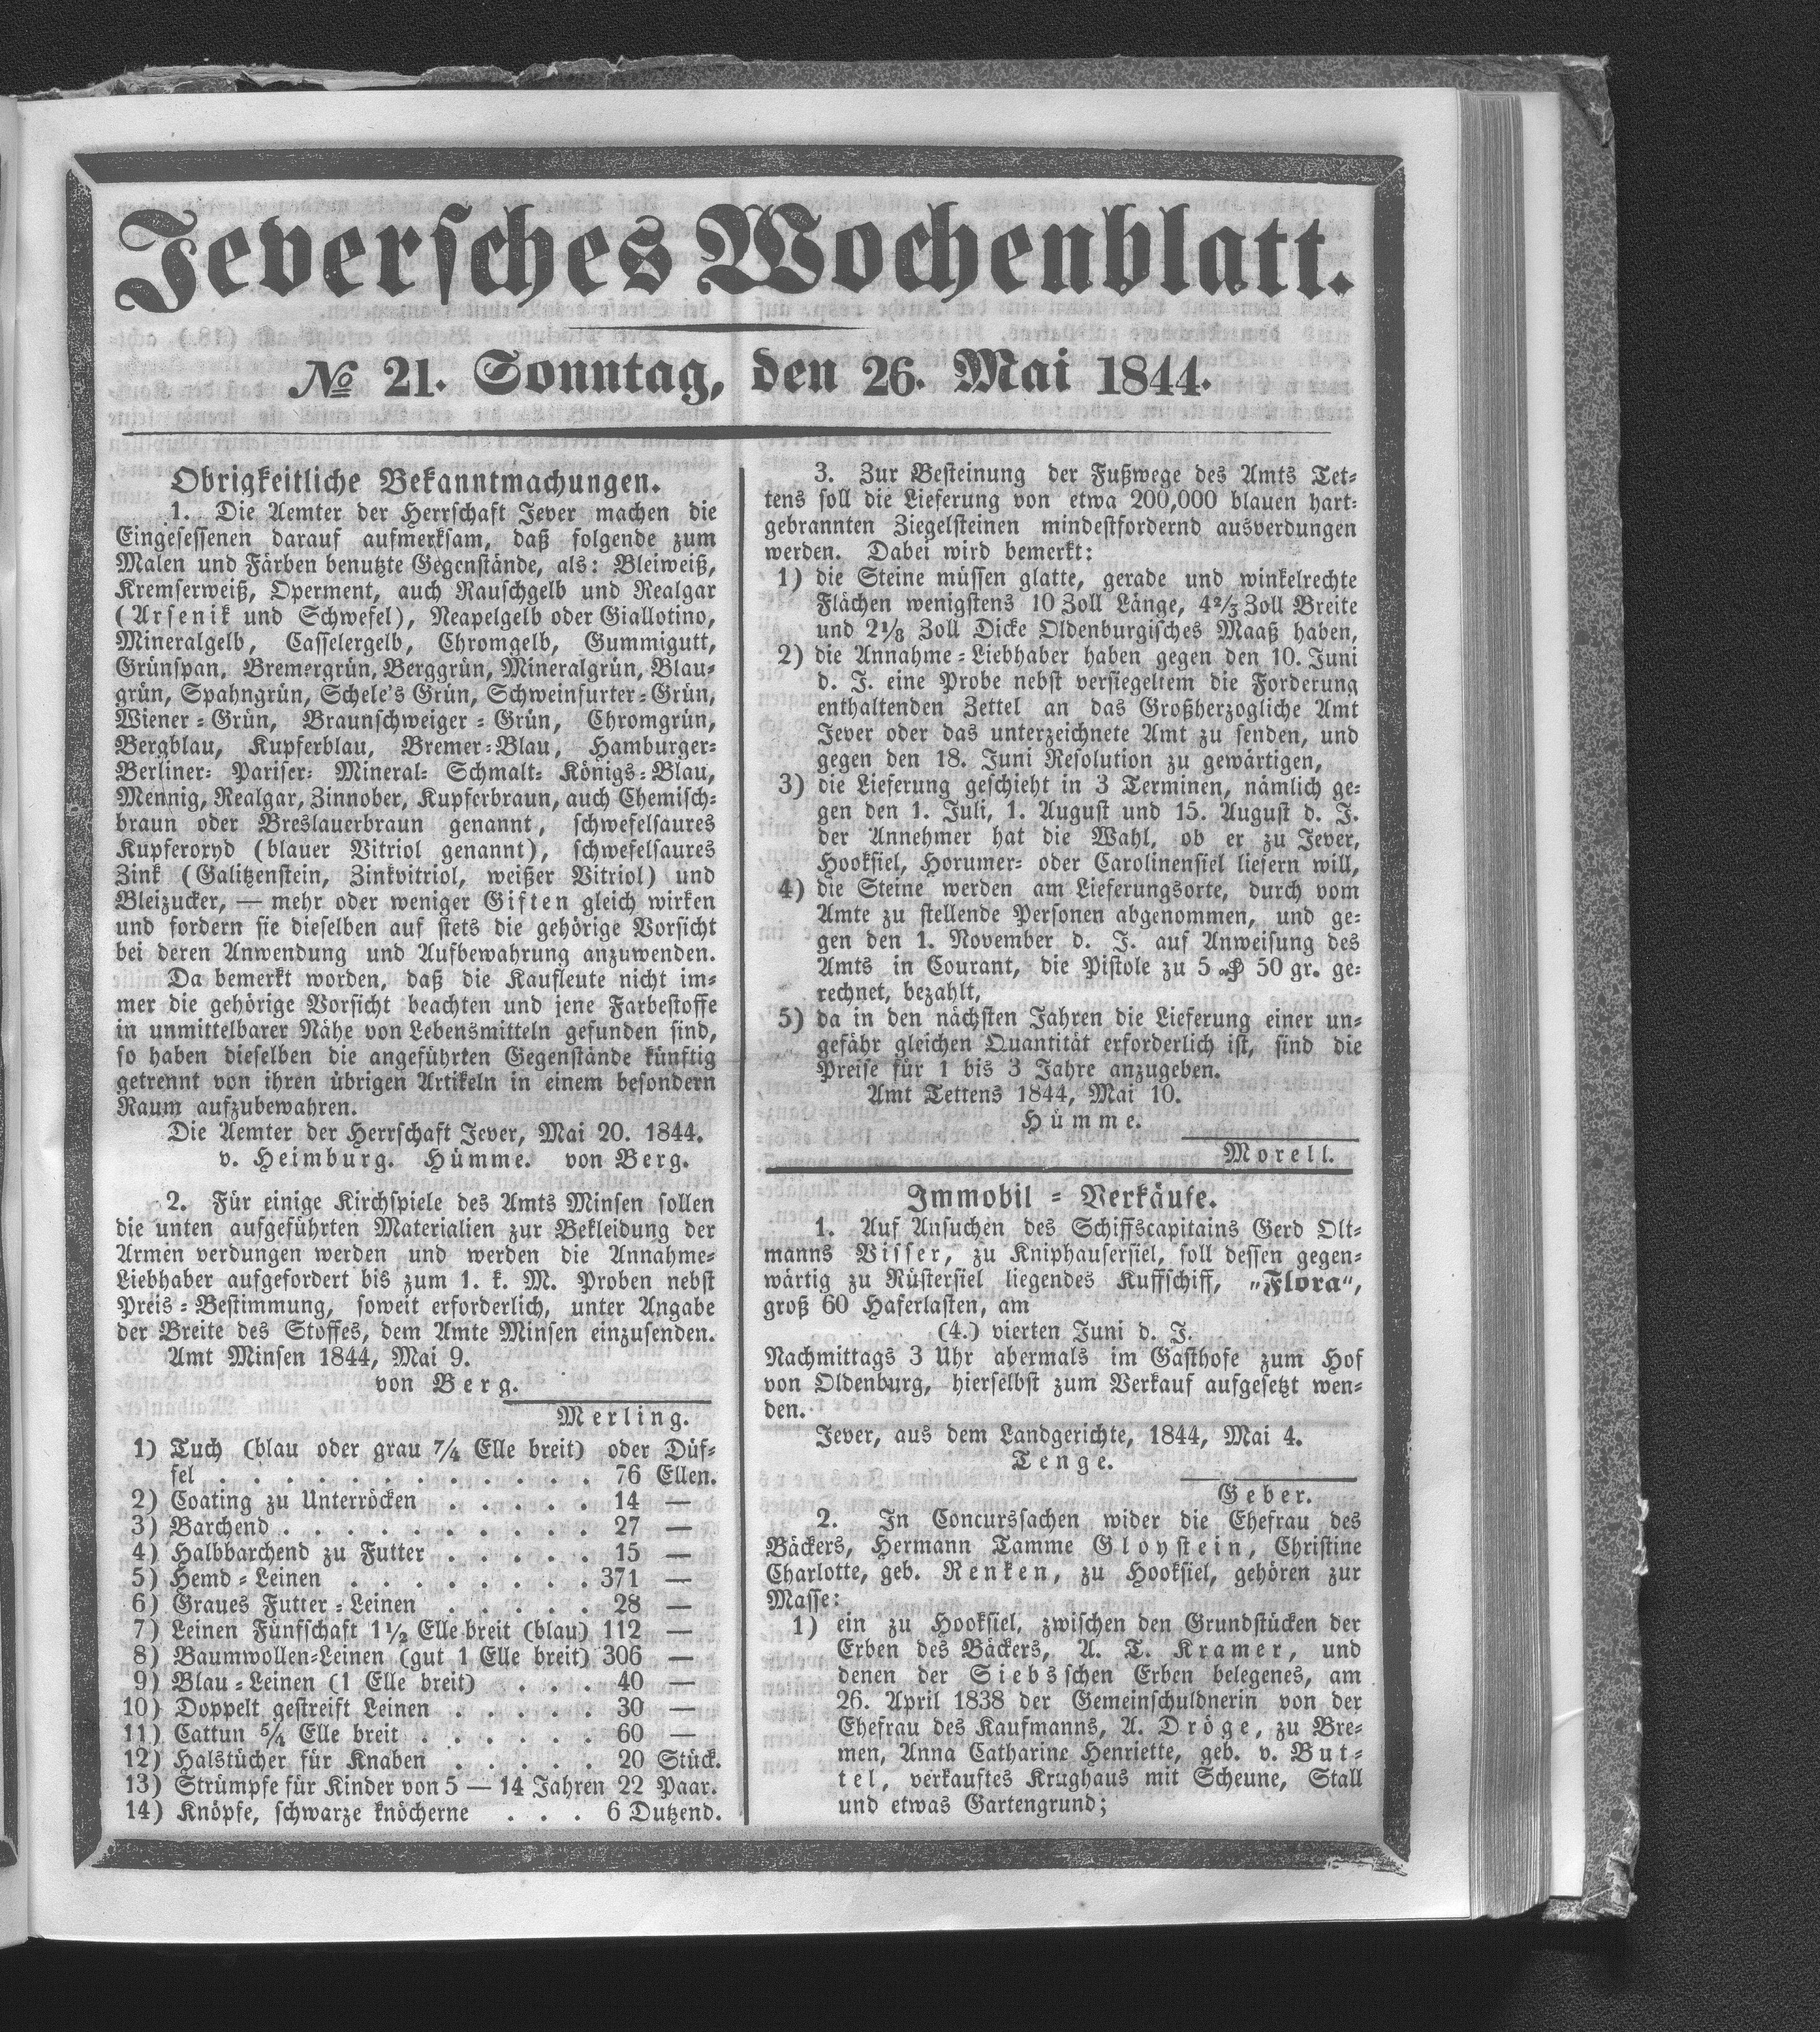 Jeversches Wochenblatt.
№ 21. Sonntag, den 26. Mai 1844.
Obrigkeitliche Bekanntmachungen.
1. Die Aemter der Herrschaft Jever machen die
Eingesessenen darauf aufmerksam, daß folgende zum
Malen und Färben benutzte Gegenstände, als: Bleiweiß,
Kremserweiß, Operment, auch Rauschgelb und Realgar
(Arsenik und Schwefel), Neapelgelb oder Giallotino,
Mineralgelb, Casselergelb, Chromgelb, Gummigutt,
Grünspan, Bremergrün, Berggrün, Mineralgrün, Blau-
grün, Spahngrün, Schele's Grün, Schweinfurter-Grün,
Wiener-Grün, Braunschweiger-Grün, Chromgrün,
Bergblau, Kupferblau, Bremer-Blau, Hamburger-
Berliner- Pariser- Mineral- Schmalt- Königs-Blau,
Mennig, Realgar, Zinnober, Kupferbraun, auch Chemisch-
braun oder Breslauerbraun genannt, schwefelsaures
Kupferoxyd (blauer Vitriol genannt), schwefelsaures
Zink (Galitzenstein, Zinkvitriol, weißer Vitriol) und
Bleizucker, — mehr oder weniger Giften gleich wirken
und fordern sie dieselben auf stets die gehörige Vorsicht
bei deren Anwendung und Aufbewahrung anzuwenden.
Da bemerkt worden, daß die Kaufleute nicht im-
mer die gehörige Vorsicht beachten und jene Farbestoffe
in unmittelbarer Nähe von Lebensmitteln gefunden sind,
so haben dieselben die angeführten Gegenstände künftig
getrennt von ihren übrigen Artikeln in einem besondern
Raum aufzubewahren.
Die Aemter der Herrschaft Jever, Mai 20. 1844.
v. Heimburg. Hümme. von Berg.
2. Für einige Kirchspiele des Amts Minsen sollen
die unten aufgeführten Materialien zur Bekleidung der
Armen verdungen werden und werden die Annahme-
Liebhaber aufgefordert bis zum 1. k. M. Proben nebst
Preis-Bestimmung, soweit erforderlich, unter Angabe
der Breite des Stoffes, dem Amte Minsen einzusenden.
Amt Minsen 1844, Mai 9.
von Berg.
Merling.
1) Tuch (blau oder grau 7/4 Elle breit) oder Düf-
fel . . . . . . . . . . . . 76 Ellen.
2) Coating zu Unterröcken . . . . . 14 —
3) Barchend . . . . . . . . . . 27 —
4) Halbbarchend zu Futter . . . . . 15 —
5) Hemd-Leinen . . . . . . . . 371 —
6) Graues Futter-Leinen . . . . . 28 —
7) Leinen Fünfschaft 1 1/2 Elle breit (blau) 112 —
8) Baumwollen-Leinen (gut 1 Elle breit) 306 —
9) Blau-Leinen (1 Elle breit) . . . 40 —
10) Doppelt gestreift Leinen . . . . . 30 —
11) Cattun 5/4 Elle breit . . . . . . 60 —
12) Halstücher für Knaben . . . . . 20 Stück.
13) Strümpfe für Kinder von 5 — 14 Jahren 22 Paar.
14) Knöpfe, schwarze knöcherne . . . 6 Dutzend.
3. Zur Besteinung der Fußwege des Amts Tet-
tens soll die Lieferung von etwa 200,000 blauen hart-
gebrannten Ziegelsteinen mindestfordernd ausverdungen
werden. Dabei wird bemerkt:
1) die Steine müssen glatte, gerade und winkelrechte
Flächen wenigstens 10 Zoll Länge, 4 2/3 Zoll Breite
und 2 1/8 Zoll Dicke Oldenburgisches Maaß haben,
2) die Annahme-Liebhaber haben gegen den 10. Juni
d. J. eine Probe nebst versiegeltem die Forderung
enthaltenden Zettel an das Großherzogliche Amt
Jever oder das unterzeichnete Amt zu senden, und
gegen den 18. Juni Resolution zu gewärtigen,
3) die Lieferung geschieht in 3 Terminen, nämlich ge-
gen den 1. Juli, 1. August und 15. August d. J.
der Annehmer hat die Wahl, ob er zu Jever,
Hooksiel, Horumer- oder Carolinensiel liefern will,
4) die Steine werden am Lieferungsorte, durch vom
Amte zu stellende Personen abgenommen, und ge-
gen den 1. November d. J. auf Anweisung des
Amts in Courant, die Pistole zu 5 ₰ 50 gr. ge-
rechnet, bezahlt,
5) da in den nächsten Jahren die Lieferung einer un-
gefähr gleichen Quantität erforderlich ist, sind die
Preise für 1 bis 3 Jahre anzugeben.
Amt Tettens 1844, Mai 10.
Hümme.
Morell.
Immobil-Verkäufe.
1. Auf Ansuchen des Schiffscapitains Gerd Olt-
manns Visser, zu Kniphausersiel, soll dessen gegen-
wärtig zu Rüstersiel liegendes Kuffschiff, „Flora“,
groß 60 Haferlasten, am
(4.) vierten Juni d. J.
Nachmittags 3 Uhr abermals im Gasthofe zum Hof
von Oldenburg, hierselbst zum Verkauf aufgesetzt wen-
den.
Jever, aus dem Landgerichte, 1844, Mai 4.
Tenge.
Geber.
2. In Concurssachen wider die Ehefrau des
Bäckers, Hermann Tamme Gloystein, Christine
Charlotte, geb. Renken, zu Hooksiel, gehören zur
Masse:
1) ein zu Hooksiel, zwischen den Grundstücken der
Erben des Bäckers, A. T. Kramer, und
denen der Siebsschen Erben belegenes, am
26. April 1838 der Gemeinschuldnerin von der
Ehefrau des Kaufmanns, A. Dröge, zu Bre-
men, Anna Catharine Henriette, geb. v. But-
tel, verkauftes Krughaus mit Scheune, Stall
und etwas Gartengrund;